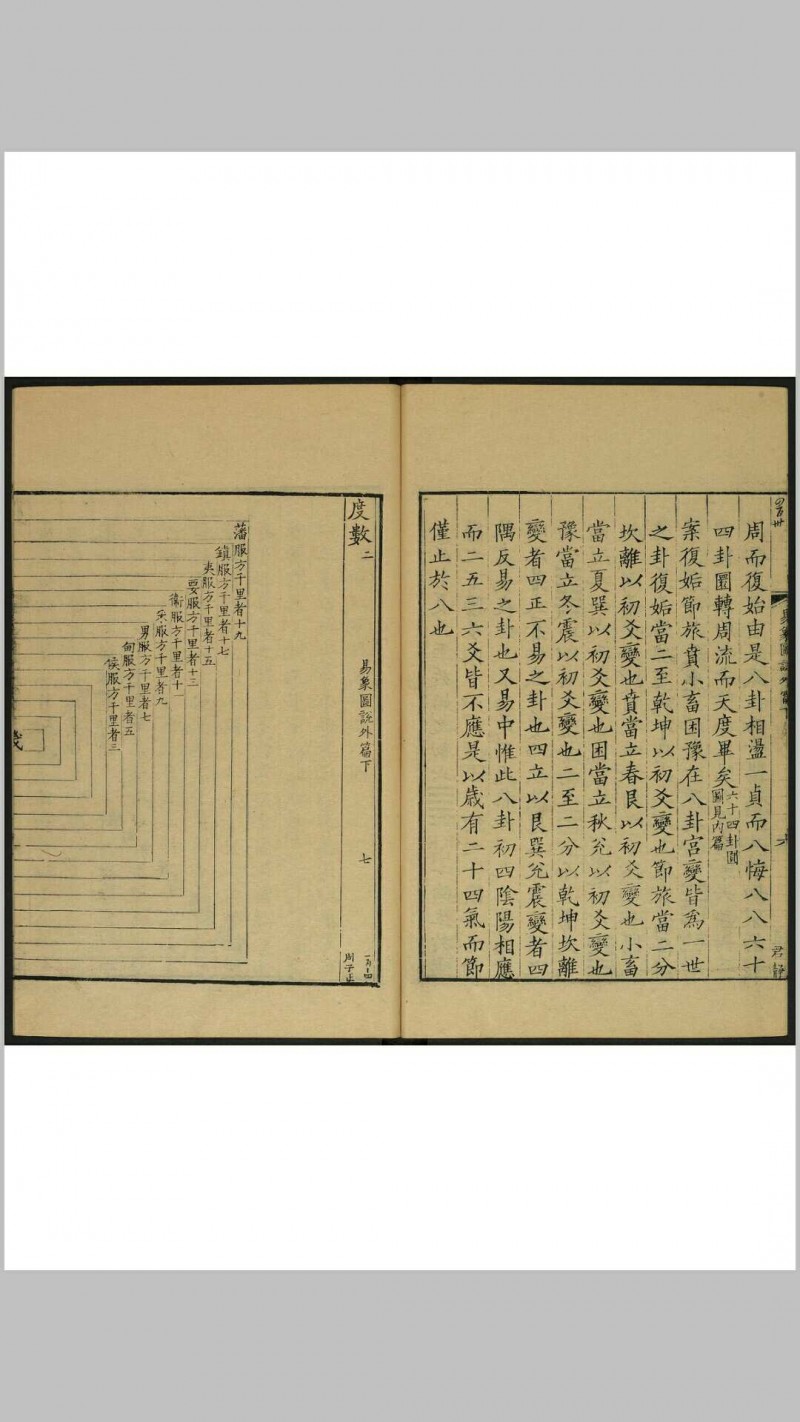 周而復始由是八卦相盪一貞而八悔八八六十
四卦圜轉周流而天度畢矣六十四卦圓圖見內篇
案復姤節旅賁小畜困豫在八卦宮變皆為一世
之卦復姤當二至乾坤以初爻變也節旅當二分
坎離以初爻變也賁當立春艮以初爻變也小畜
當立夏巽以初爻變也困當立秋兌以初爻變也
豫當立冬震以初爻變也二至二分以乾坤坎離
變者四正不易之卦也四立以艮巽兌震變者四
隅反易之卦也又易中惟此八卦初四陰陽相應
而二五三六爻皆不應是以歲有二十四氣而節
僅止於八也
度數二
易象圖說外篇下
七
周子正
藩服方千里者十九
鎮服方千里者十七
夷服方千里者十五
要服方千里者十三
衞服方千里者十一
采服方千里者九
男服方千里者七
甸服方千里者五
侯服方千里者三